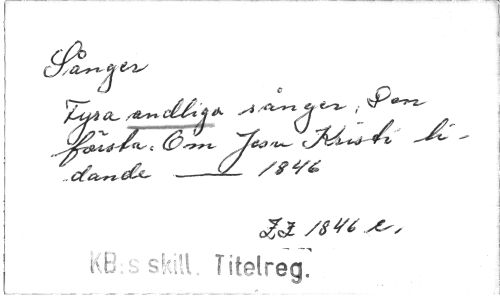 Sånger
Fyra andliga sånger, Den
första: Om Jesu Kristi li-
dande — 1846
ZZ 1846 c.
KB:s skill. Titelreg.